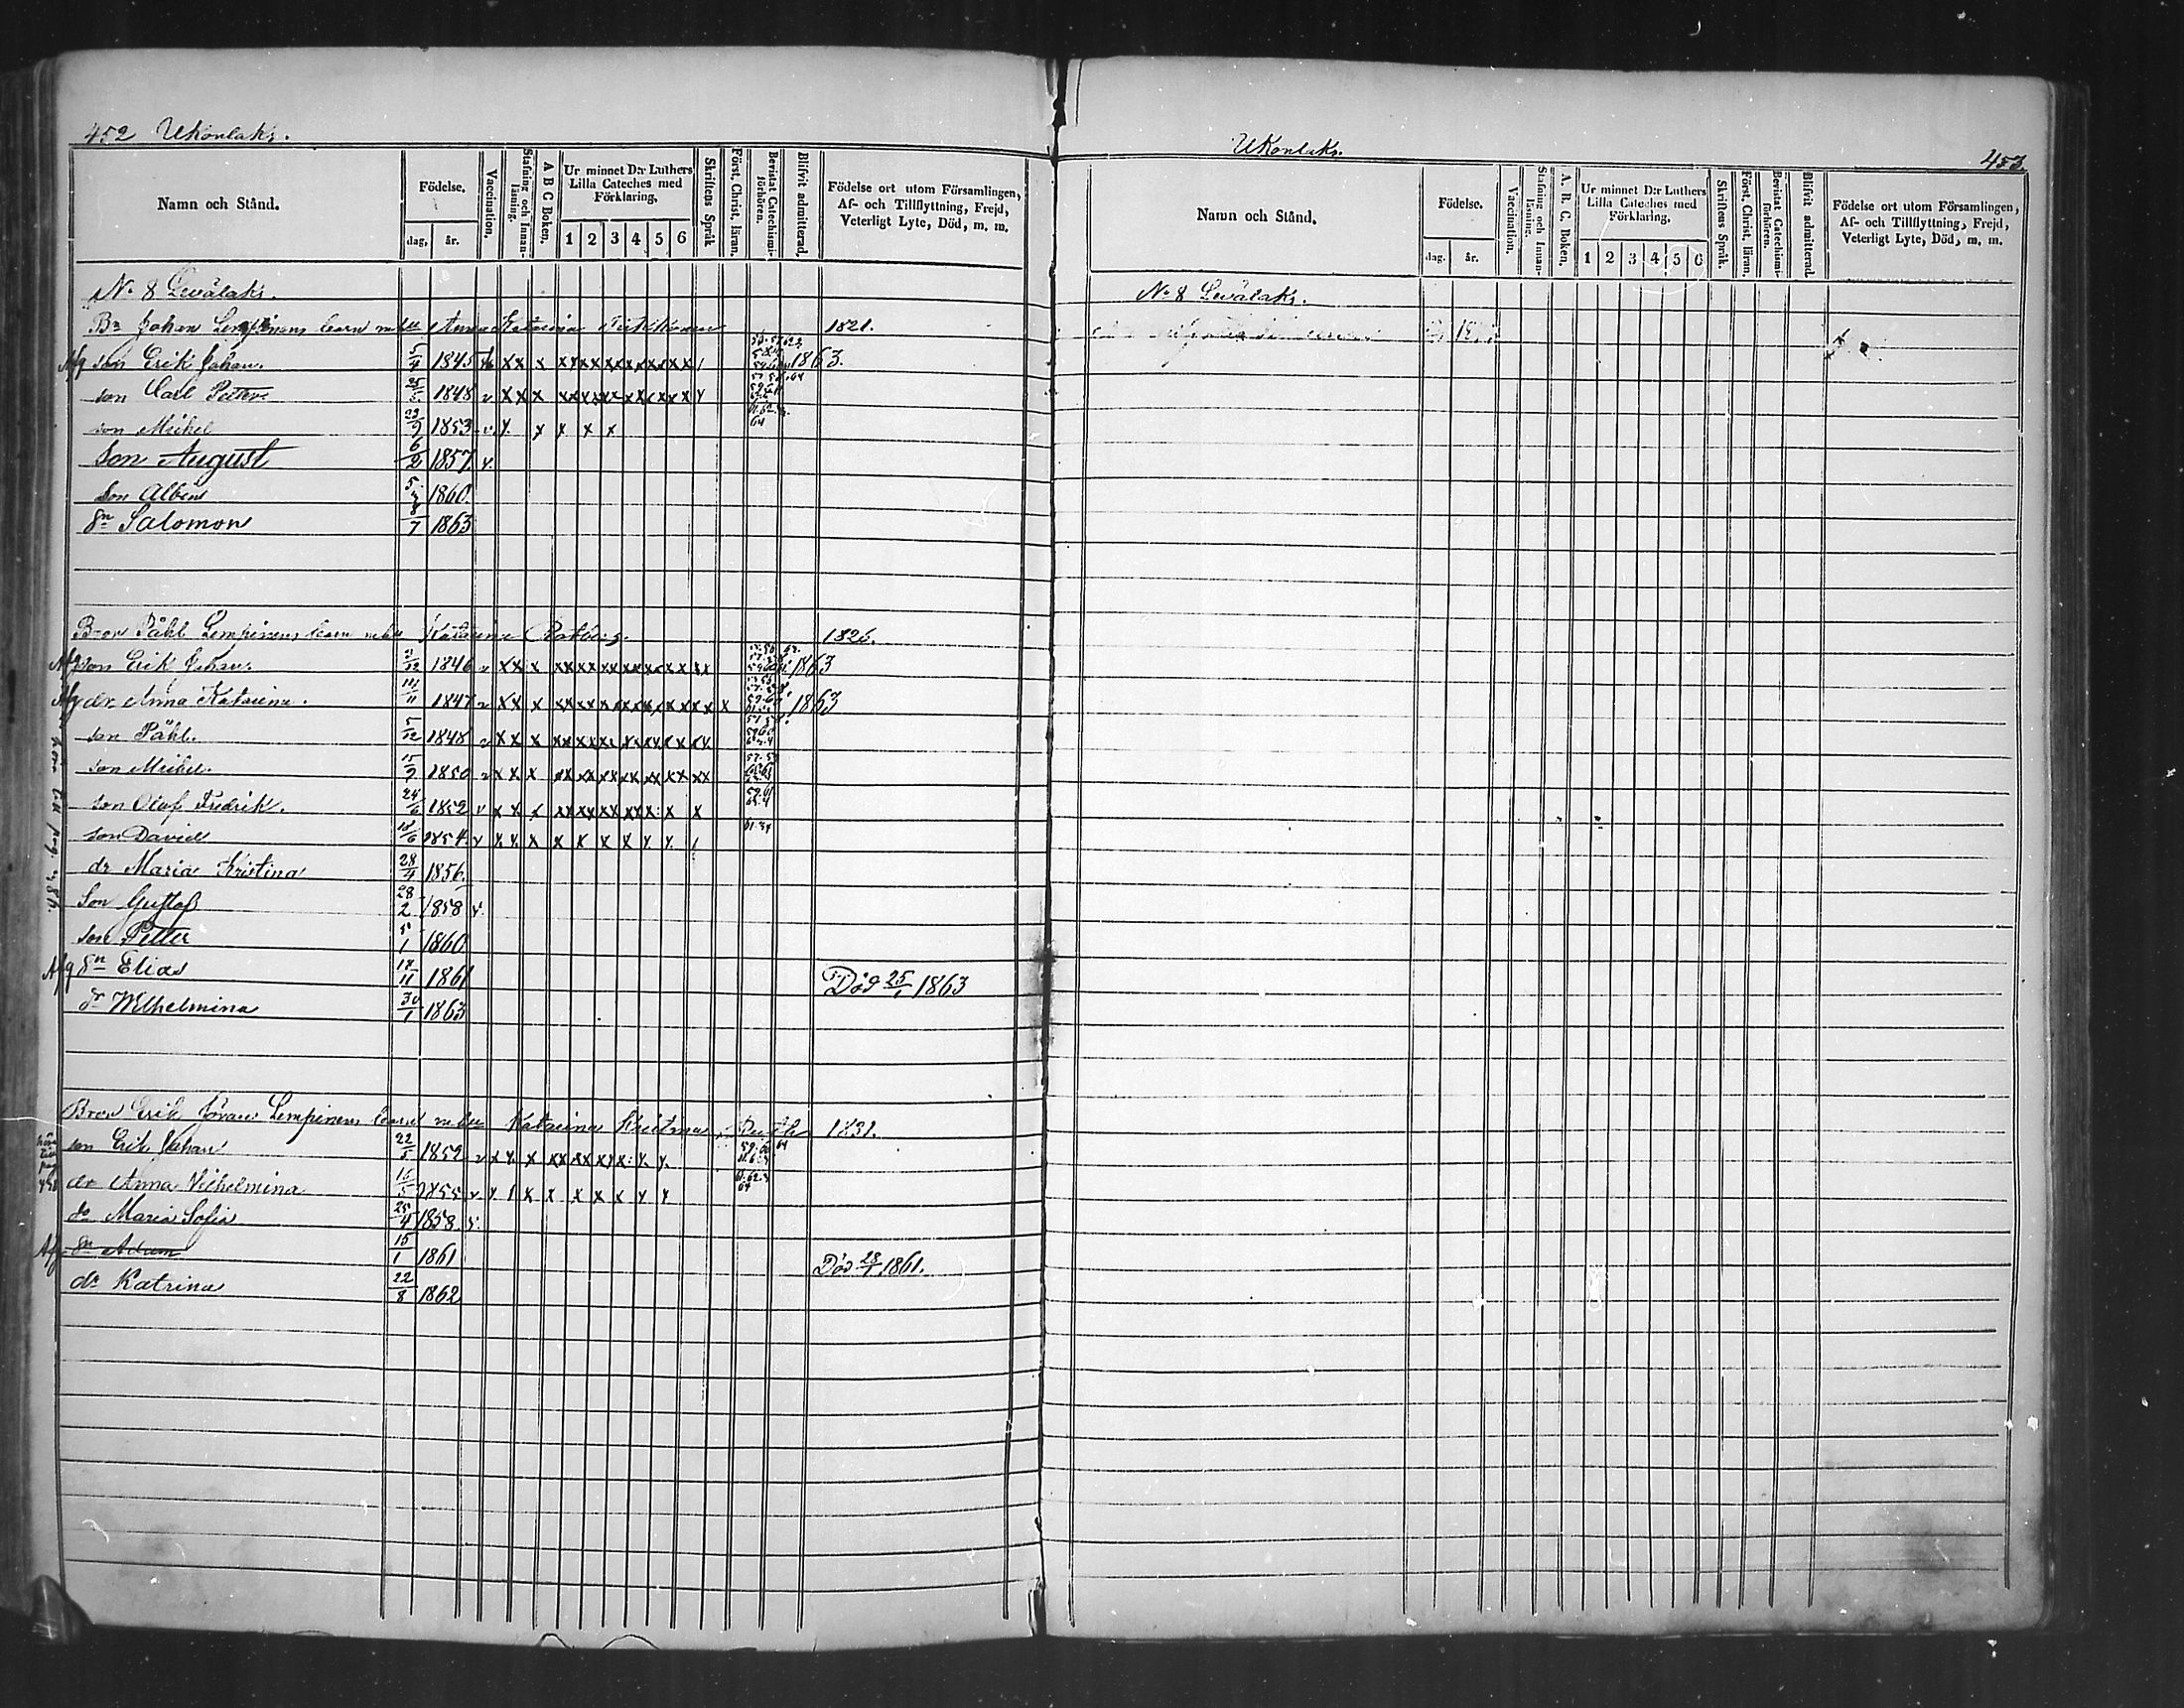 452 Ukonlaks.
Namn och Stånd.
Födelse.
dag.
år.
Vaccination.
Stafning och Innanläsning.
A B C Boken.
Ur minnet D:r Luthers Lilla Cateches med Förklaring.
1 2 3 4 5 6
Skriftens Språk
Först. Christ. läran.
Bevistat Catechismiförhören.
Blifvit admitterad.
Födelse ort utom Församlingen, Af- och Tillflyttning, Frejd, Veterligt Lyte, Död, m. m.
No 8 Levälaks.
Bn Johan Lempinens barn m. Anna Katarina 1821.
Afg son Erik Johan. 5/4 1845 x x x x x x x x x x x x x x x 1863.
son Carl Petter 25/5 1848 v x x x x x x x x x x x x x x
son Mickel 29/9 1853 v. x x x x x
Son August 6/2 1857 v.
Son Albin 5/3 1860.
Sn Salomon 8/7 1863
Bron Påhl Lempinens barn m. Katarina 1826.
Afg son Erik Johan. 1846 v x x x x x x x x x x x x x x x x 1863
Afg dr Anna Katarina. 14/11 1847 v x x x x x x x x x x x x x x x x x 1863
son Påhl. 5/12 1848 v x x x x x x x x x x x x x x
son Mickel. 15/9 1850 v x x x x x x x x x x x x x x x
son Olof Fredrik. 24/6 1852 v x x x x x x x x x x x x x
son David 18/6 1854. v x x x x x x x x x
dr Maria Kristina 28/4 1856.
Son Gustaf 28/2 1858 v.
Son Petter 5/1 1860
Afg Sn Elias 18/11 1861 Död 25/1 1863
dr Wilhelmina 30/1 1863
Bron Erik Göran Lempinens barn m. Katarina Kristina 1831.
son Erik Johan 22/5 1852 v x x x x x x x x x x x
dr Anna Vilhelmina 16/5 1855 v x x x x x x x x
dr Maria Sofia 25/4 1858. v.
Afg Sn Adam 15/1 1861 Död 28/1 1861.
dr Katrina 22/8 1862
Ukonlaks. 453.
Namn och Stånd.
Födelse.
dag.
år.
Vaccination.
Stafning och Innanläsning.
A. B. C. Boken.
Ur minnet D:r Luthers Lilla Cateches med Förklaring.
1 2 3 4 5 6
Skriftens Språk.
Först. Christ. läran.
Bevistat Catechismiförhören.
Blifvit admitterad.
Födelse ort utom Församlingen, Af- och Tillflyttning, Frejd, Veterligt Lyte, Död, m. m.
No 8 Levälaks.